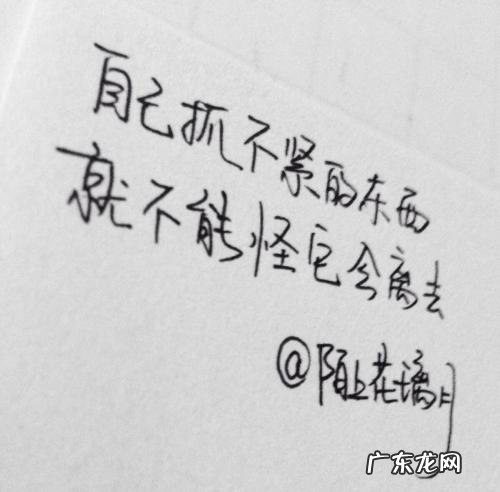 自己抓不紧的东西
就不能怪它会离去
@陌上花璃月
广东龙网